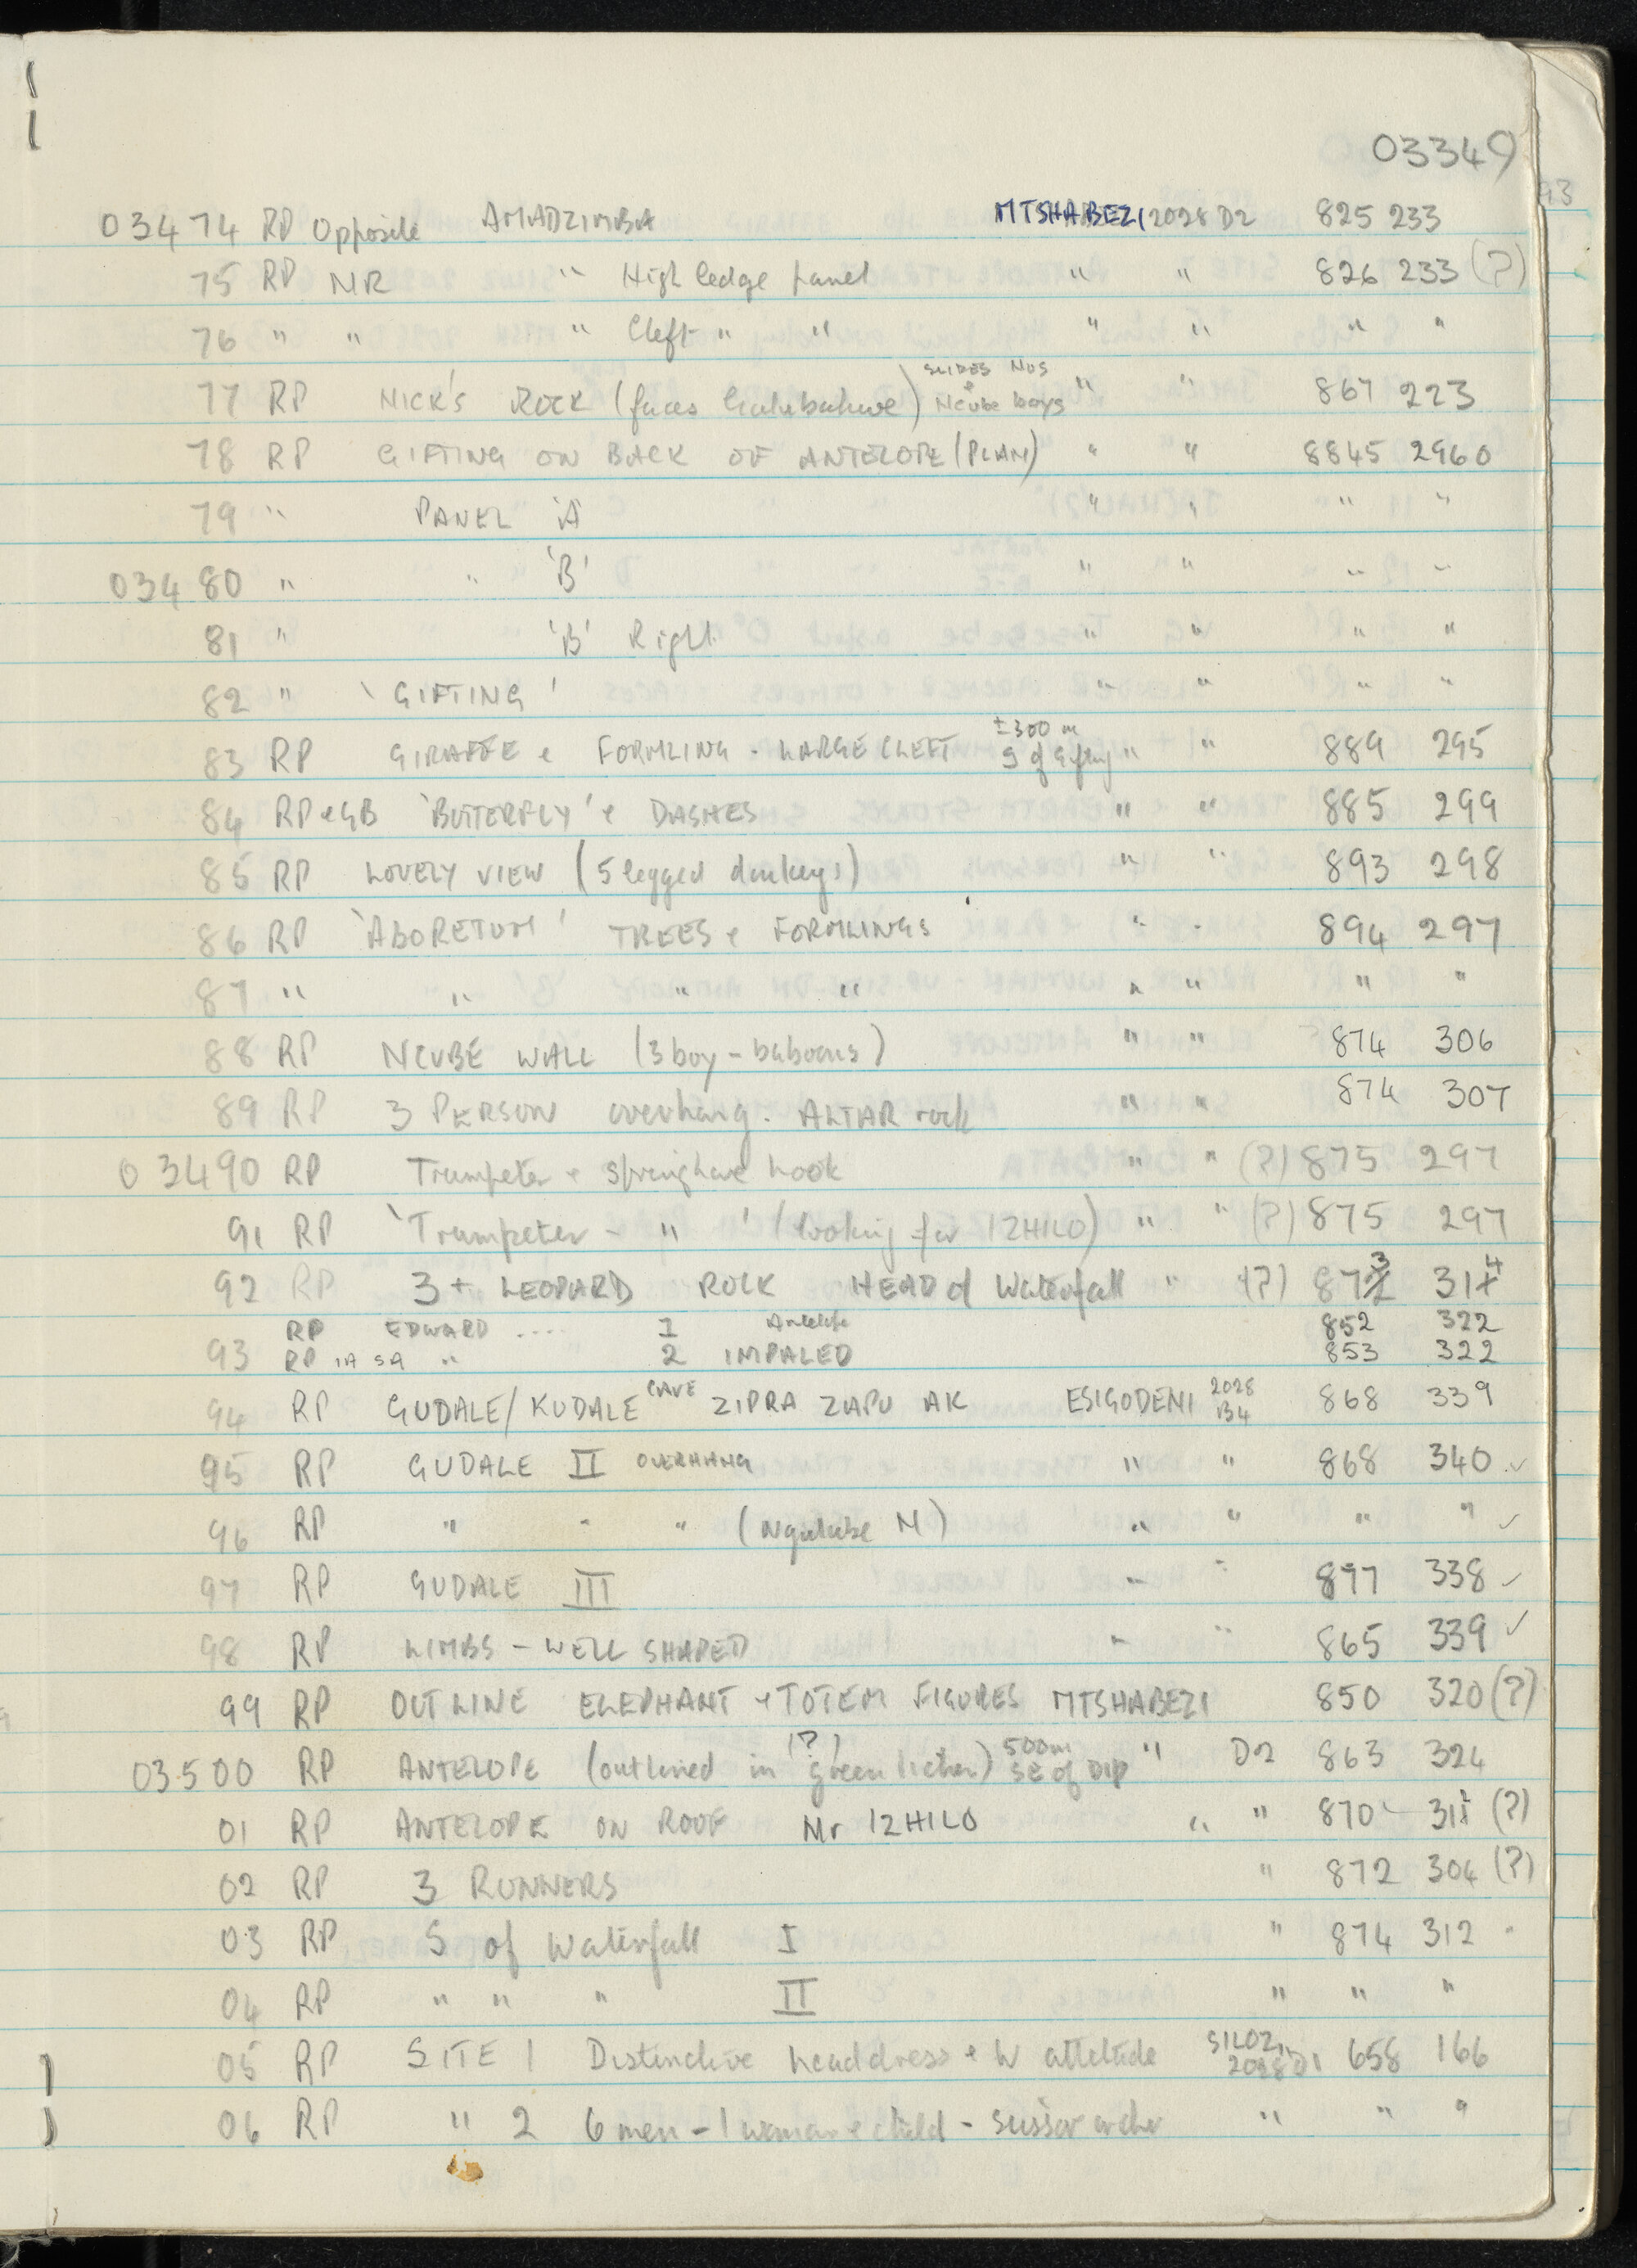 03349
03474 RP Opposite AMADZIMBA MTSHABEZI 2028 D2 825 233
75 RP NR " High ledge panel " " 826 233 (?)
76 " " " Cleft " " " " " "
77 RP NICK'S ROCK (faces ) SLIDES NOS + Ncube boys " " 867 223
78 RP GIFTING ON BACK OF ANTELOPE (PLAN) " " 8845 2960
79 " PANEL 'A' " " " "
03480 " " 'B' " " " "
81 " 'B' Right " " " "
82 " 'GIFTING' " " " "
83 RP GIRAFFE & FORMLING - LARGE CLEFT ±300 m S of Gifting " " 889 295
84 RP & GB 'BUTTERFLY' & DASHES " " 885 299
85 RP LOVELY VIEW (5 legged donkeys) " " 893 298
86 RP 'ABORETUM' TREES & FORMLINGS " " 894 297
87 " " " " " " " "
88 RP NCUBE WALL (3 boy - baboons) " " 874 306
89 RP 3 PERSON overhang. ALTAR rock " " 874 307
03490 RP Trumpeter & springhare hook " " (?) 875 297
91 RP 'Trumpeter - " ' (looking for IZHILO) " " (?) 875 297
92 RP 3 + LEOPARD ROCK HEAD of Waterfall " (?) 873 314
RP EDWARD .... 1 Antelope 852 322
93 RP IA SA " 2 IMPALED 853 322
94 RP GUDALE/KUDALE CAVE ZIPRA ZAPU AK ESIGODENI 2028 B4 868 339
95 RP GUDALE II OVERHANG " " 868 340 ✓
96 RP " " " (Ngulube M) " " " " ✓
97 RP GUDALE III " " 877 338 ✓
98 RP LIMBS - WELL SHAPED " " 865 339 ✓
99 RP OUTLINE ELEPHANT & TOTEM FIGURES MTSHABEZI 850 320 (?)
03500 RP ANTELOPE (outlined in (?) green lichen) 500m SE of DIP " D2 863 324
01 RP ANTELOPE ON ROOF Mr IZHILO " " 870 311 (?)
02 RP 3 RUNNERS " 872 304 (?)
03 RP S of Waterfall I " 874 312
04 RP " " " II " " "
05 RP SITE 1 Distinctive headdress & W attitude SILOZI 2028 D1 658 166
06 RP " 2 6 men - 1 woman & child - scissor archer " " "